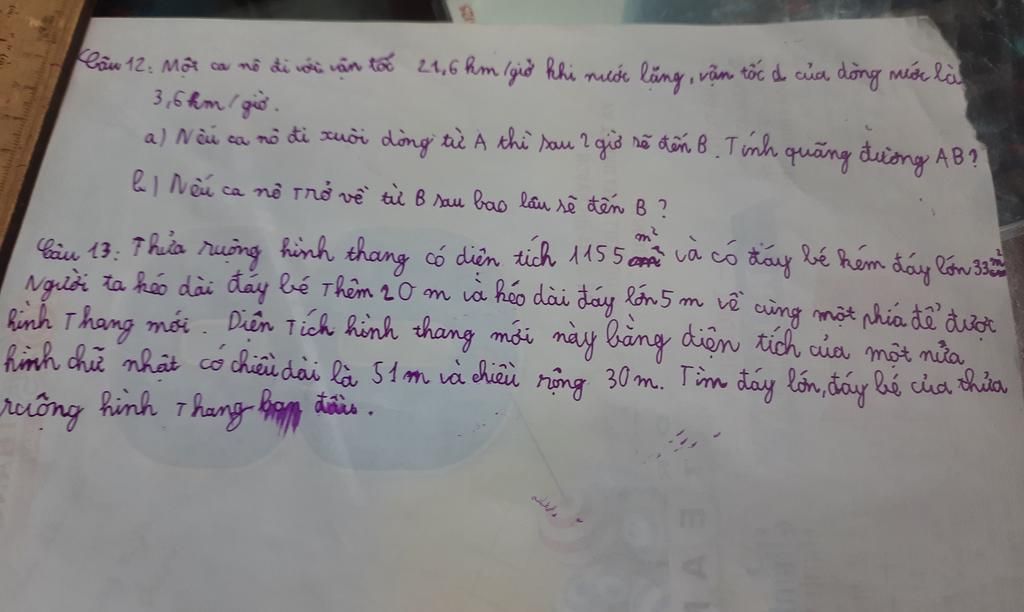 Câu 12: Một ca nô đi với vận tốc 21,6 km/giờ khi nước lặng, vận tốc d của dòng nước là
3,6 km/giờ.
a) Nếu ca nô đi xuôi dòng từ A thì sau 2 giờ sẽ đến B. Tính quãng đường AB?
b) Nếu ca nô trở về từ B sau bao lâu sẽ đến B?
Câu 13: Thửa ruộng hình thang có diện tích 1155 m² và có đáy bé kém đáy lớn 33 m
Người ta kéo dài đáy bé thêm 20 m và kéo dài đáy lớn 5 m về cùng một phía để được
hình thang mới. Diện tích hình thang mới này bằng diện tích của một nửa
hình chữ nhật có chiều dài là 51 m và chiều rộng 30 m. Tìm đáy lớn, đáy bé của thửa
ruộng hình thang ban đầu.